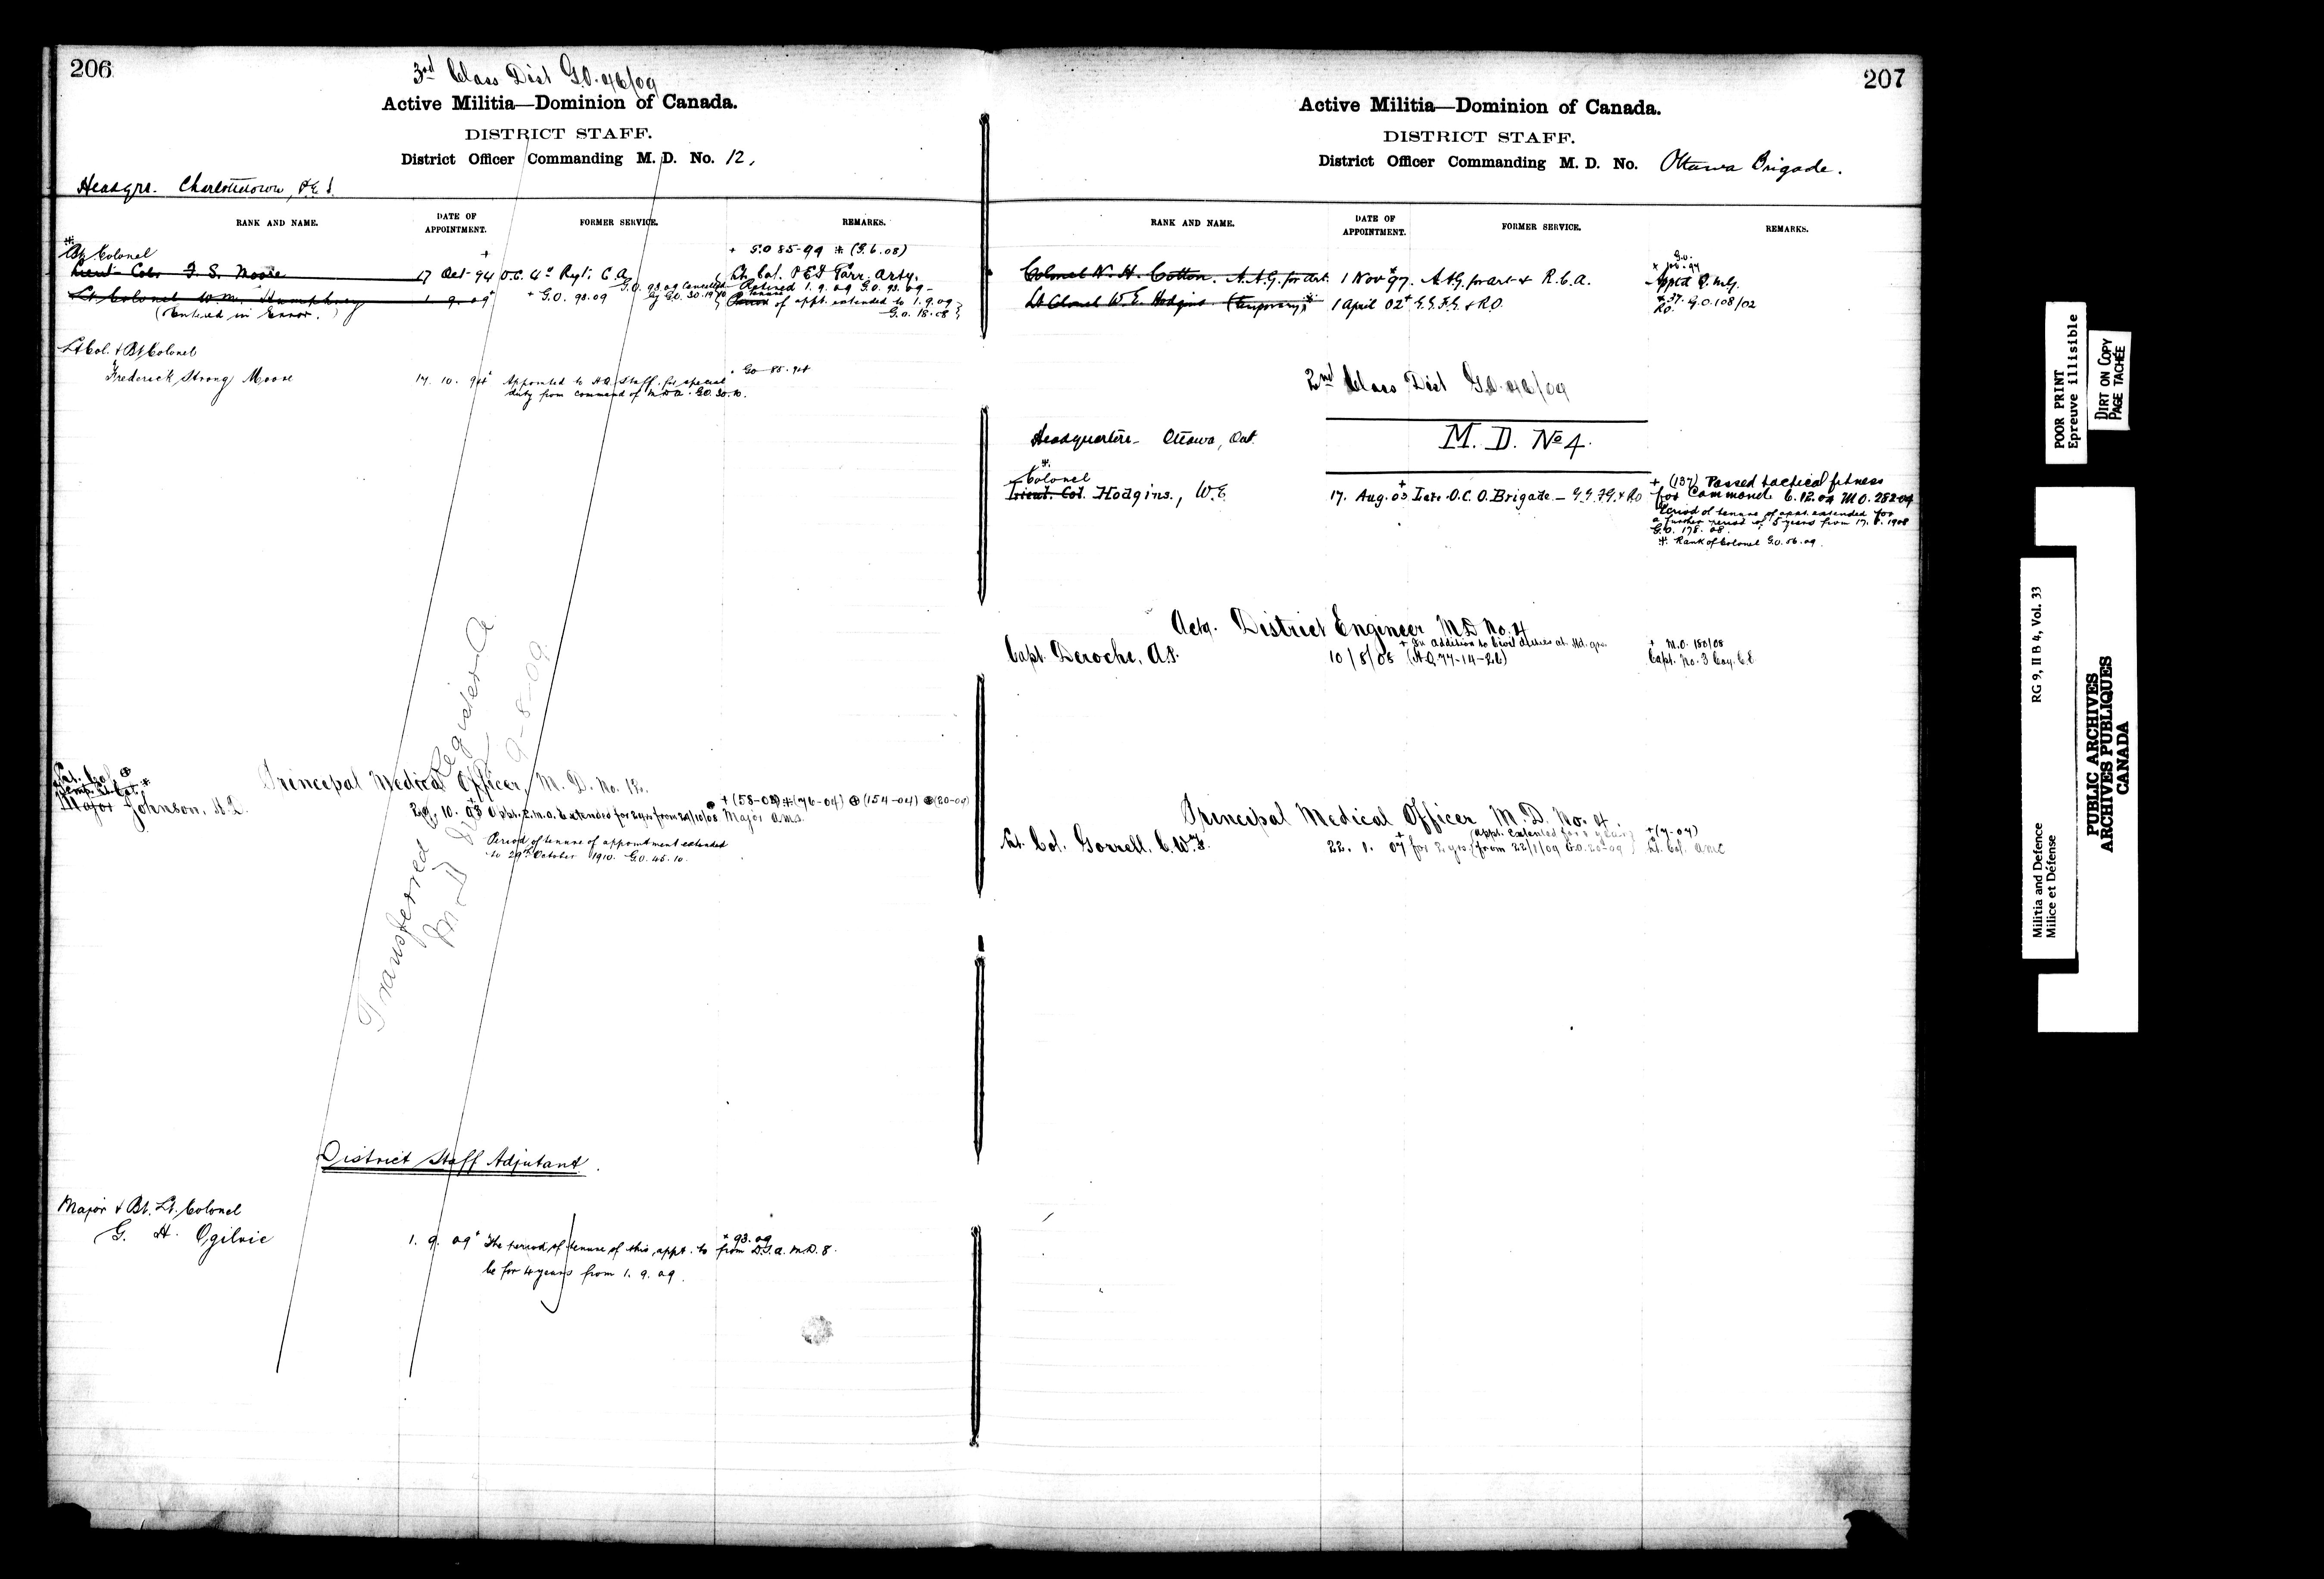 206
3rd Class Dist G.O. 46/09
Active Militia—Dominion of Canada.
DISTRICT STAFF.
District Officer Commanding M. D. No. 12,
Headqrs. Charlottetown, P.E.I.
RANK AND NAME. DATE OF APPOINTMENT. FORMER SERVICE. REMARKS.
Bt. Colonel + + G.O 85-94 * (G. 6. 08)
Lieut Col. F. S. Moore 17 Oct 94 O.C. 4th Regt. C.A. Lt. Col. P.E.I Garr. Arty.
G.O. 93.09 cancelled Retired 1. 9. 09 G.O. 93. 09
Lt. Colonel W. M. Humphrey 1. 9. 09+ + G.O. 93.09 by G.O. 30.1910 Period of appt. extended to 1.9.09
(Entered in Error.) G.O. 18.08
Lt Col. & Bt Colonel
Frederick Strong Moore 17. 10. 94+ Appointed to H.Q. Staff for special + GO 85. 94
duty from command of
Transferred Register A
9-8-09
Principal Medical Officer, M. D. No. 12.
Lt. Col.
Major Johnson, H.D. 29. 10. 03 Appt. P.M.O. extended for 2 yrs from 29/10/08 + (58-03) * (76-04) ⊕ (154-04) (20-09)
Major AMS.
Period of tenure of appointment extended
to 29th October 1910. G.O. 45. 10.
District Staff Adjutant.
Major & Bt. Lt. Colonel
G. H. Ogilvie 1. 9. 09+ The period of tenure of this appt. to + 93. 09
be for 4 years from 1. 9. 09. from D.S.A. M.D. 8.
207
Active Militia—Dominion of Canada.
DISTRICT STAFF.
District Officer Commanding M. D. No. Ottawa Brigade.
RANK AND NAME. DATE OF APPOINTMENT. FORMER SERVICE. REMARKS.
Colonel W. H. Cotton. A.A.G. for Art. 1 Nov 97. A.A.G. for Art & R.C.A. Appt'd Q.M.G.
Lt Colonel W. E. Hodgins (Temporary) 1 April 02+ G.G.F.G. & R.O. G.O. 108/02
2nd Class Dist G.O. 46/09
Headquarters Ottawa, Ont. M. D. No 4.
Colonel
Lieut. Col. Hodgins, W.E. 17. Aug. 03+ Late O.C. O. Brigade — G.G.F.G. & RO
+ (137) Passed tactical fitness
for Command 6. 12. 04 M.O. 282-04
Period of tenure of appt. extended for
a further period of 5 years from 17. 8. 1908
G.O. 178. 08.
* Rank of Colonel G.O. 56. 09.
Actg. District Engineer M.D No. 4
Capt. Deroche, A.P. 10/8/08 + In addition to Civil duties at Hd. qrs. + M.O. 180/08
(H.Q. 77-14-26) Capt. No. 3 Coy. C.E.
Principal Medical Officer M. D. No. 4.
Lt. Col. Gorrell, C.W.F. 22. 1. 07+ for 2 yrs. (appt. extended for 2 years + (7-07)
from 22/1/09 G.O. 20-09) Lt. Col. AMC
POOR PRINT
Epreuve illisible
DIRT ON COPY
PAGE TACHÉE
Militia and Defence RG 9, II B 4, Vol. 33
Milice et Défense
PUBLIC ARCHIVES
ARCHIVES PUBLIQUES
CANADA